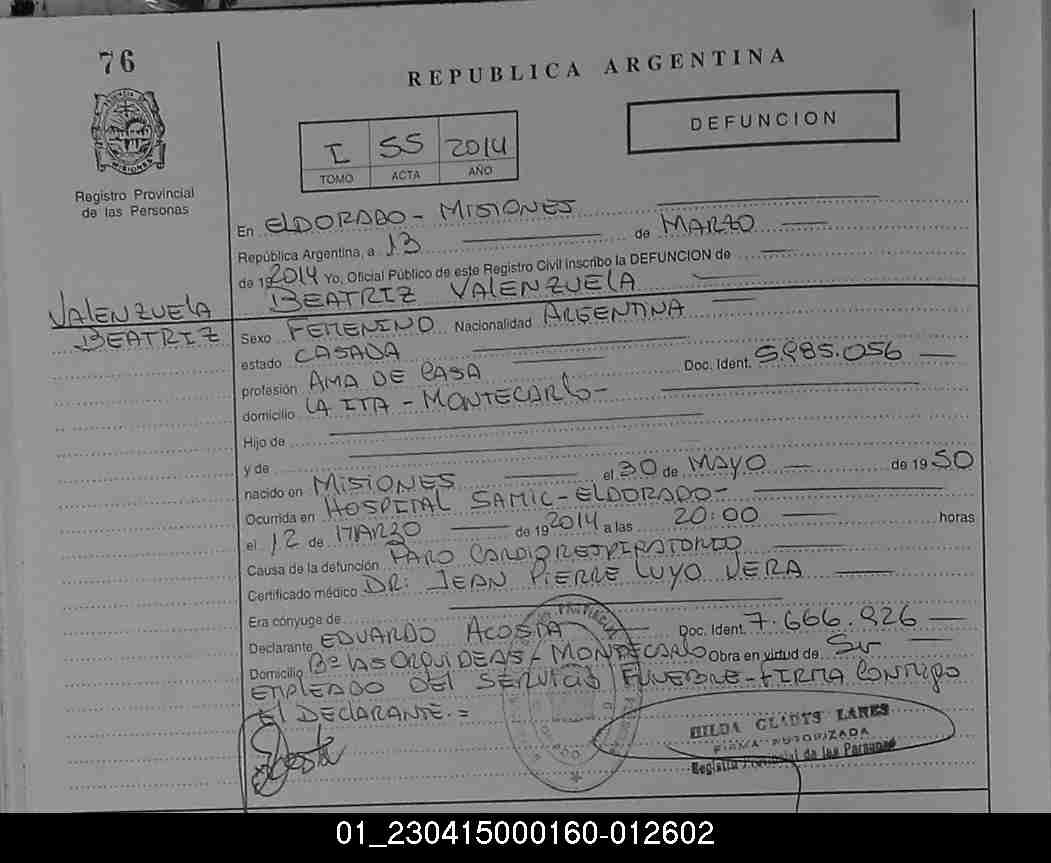 76
REPUBLICA ARGENTINA
DEFUNCION
I 55 2014
TOMO ACTA AÑO
PROVINCIA MISIONES
Registro Provincial
de las Personas
En ELDORADO - MISIONES
República Argentina, a 13 de MARZO
de 19 2014 Yo, Oficial Público de este Registro Civil inscribo la DEFUNCION de
BEATRIZ VALENZUELA
VALENZUELA
BEATRIZ
Sexo FEMENINO Nacionalidad ARGENTINA
estado CASADA
profesión AMA DE CASA Doc. Ident. 5.985.056
domicilio LA ITA - MONTECARLO -
Hijo de
y de
nacido en MISIONES el 30 de MAYO de 19 50
Ocurrida en HOSPITAL SAMIC - ELDORADO -
el 12 de MARZO de 19 2014 a las 20:00 horas
Causa de la defunción PARO CARDIORESPIRATORIO
Certificado médico DR: JEAN PIERRE LUYO VERA
Era cónyuge de
Declarante EDUARDO ACOSTA Doc. Ident. 7.666.926
Domicilio Bº LAS ORQUIDEAS - MONTECARLO Obra en virtud de Su
EMPLEADO DEL SERVICIO FUNEBRE - FIRMA CONMIGO
EL DECLARANTE. =
HILDA GLADYS LARES
FIRMA AUTORIZADA
Registro Provincial de las Personas
01_230415000160-012602